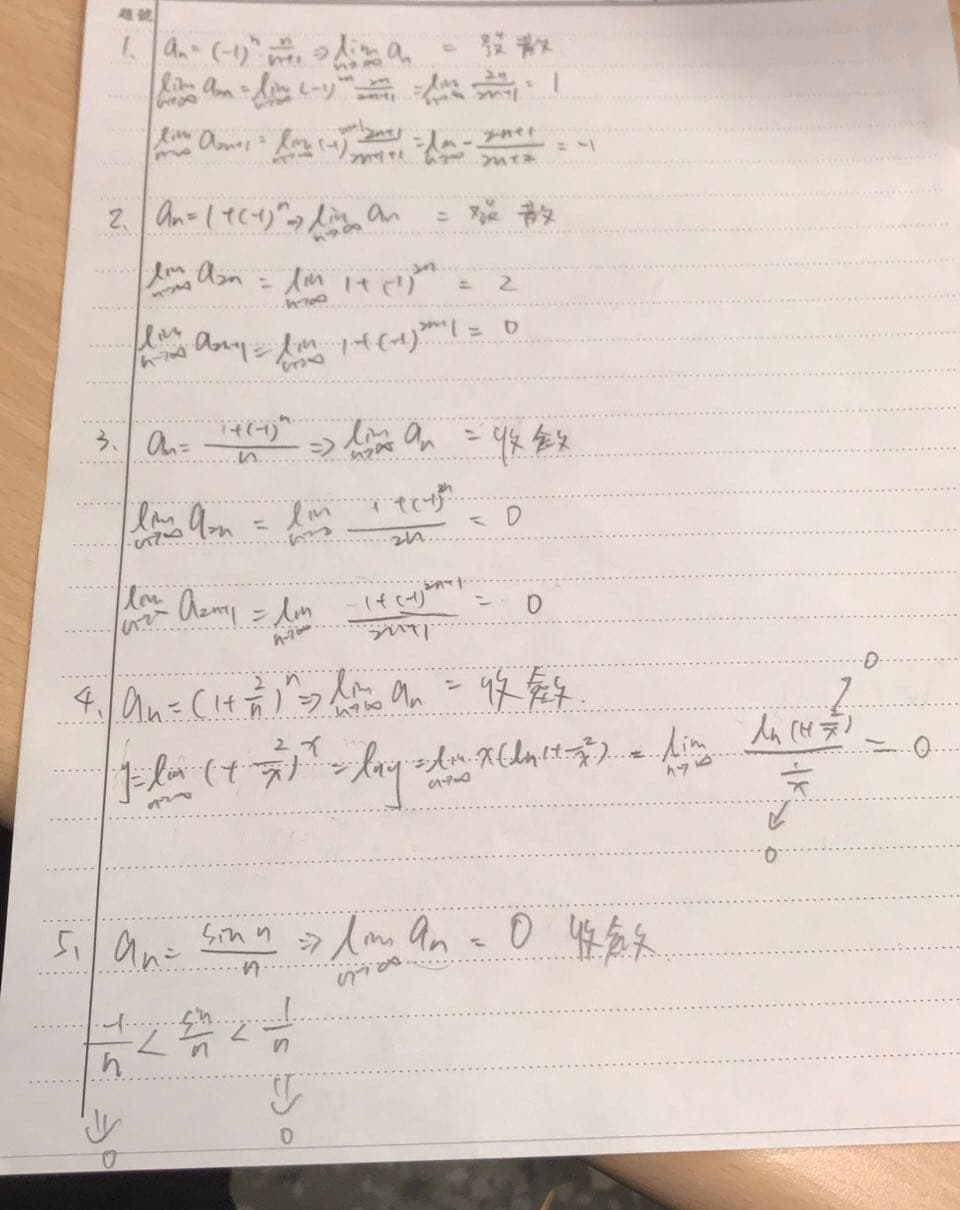 題號
1. aₙ = (-1)ⁿ n/(n+1) ⇒ lim n→∞ aₙ = 發散
lim n→∞ a₂ₙ = lim n→∞ (-1)²ⁿ 2n/(2n+1) = lim n→∞ 2n/(2n+1) = 1
lim n→∞ a₂ₙ₊₁ = lim n→∞ (-1)²ⁿ⁺¹ (2n+1)/(2n+1+1) = lim n→∞ - (2n+1)/(2n+2) = -1
2. aₙ = 1+(-1)ⁿ ⇒ lim n→∞ aₙ = 發散
lim n→∞ a₂ₙ = lim n→∞ 1+(-1)²ⁿ = 2
lim n→∞ a₂ₙ₊₁ = lim n→∞ 1+(-1)²ⁿ⁺¹ = 0
3. aₙ = (1+(-1)ⁿ)/n ⇒ lim n→∞ aₙ = 收斂
lim n→∞ a₂ₙ = lim n→∞ (1+(-1)²ⁿ)/2n = 0
lim n→∞ a₂ₙ₊₁ = lim n→∞ (1+(-1)²ⁿ⁺¹)/(2n+1) = 0
4. aₙ = (1+2/n)ⁿ ⇒ lim n→∞ aₙ = 收斂.
0
y = lim n→∞ (1+2/x)ˣ = ln y = lim n→∞ x(ln 1+2/x) = lim n→∞ ln(1+2/x)/(1/x) = 0
0
5. aₙ = sin n/n ⇒ lim n→∞ aₙ = 0 收斂
-1/n < sin/n < 1/n
⇓ ⇓
0 0